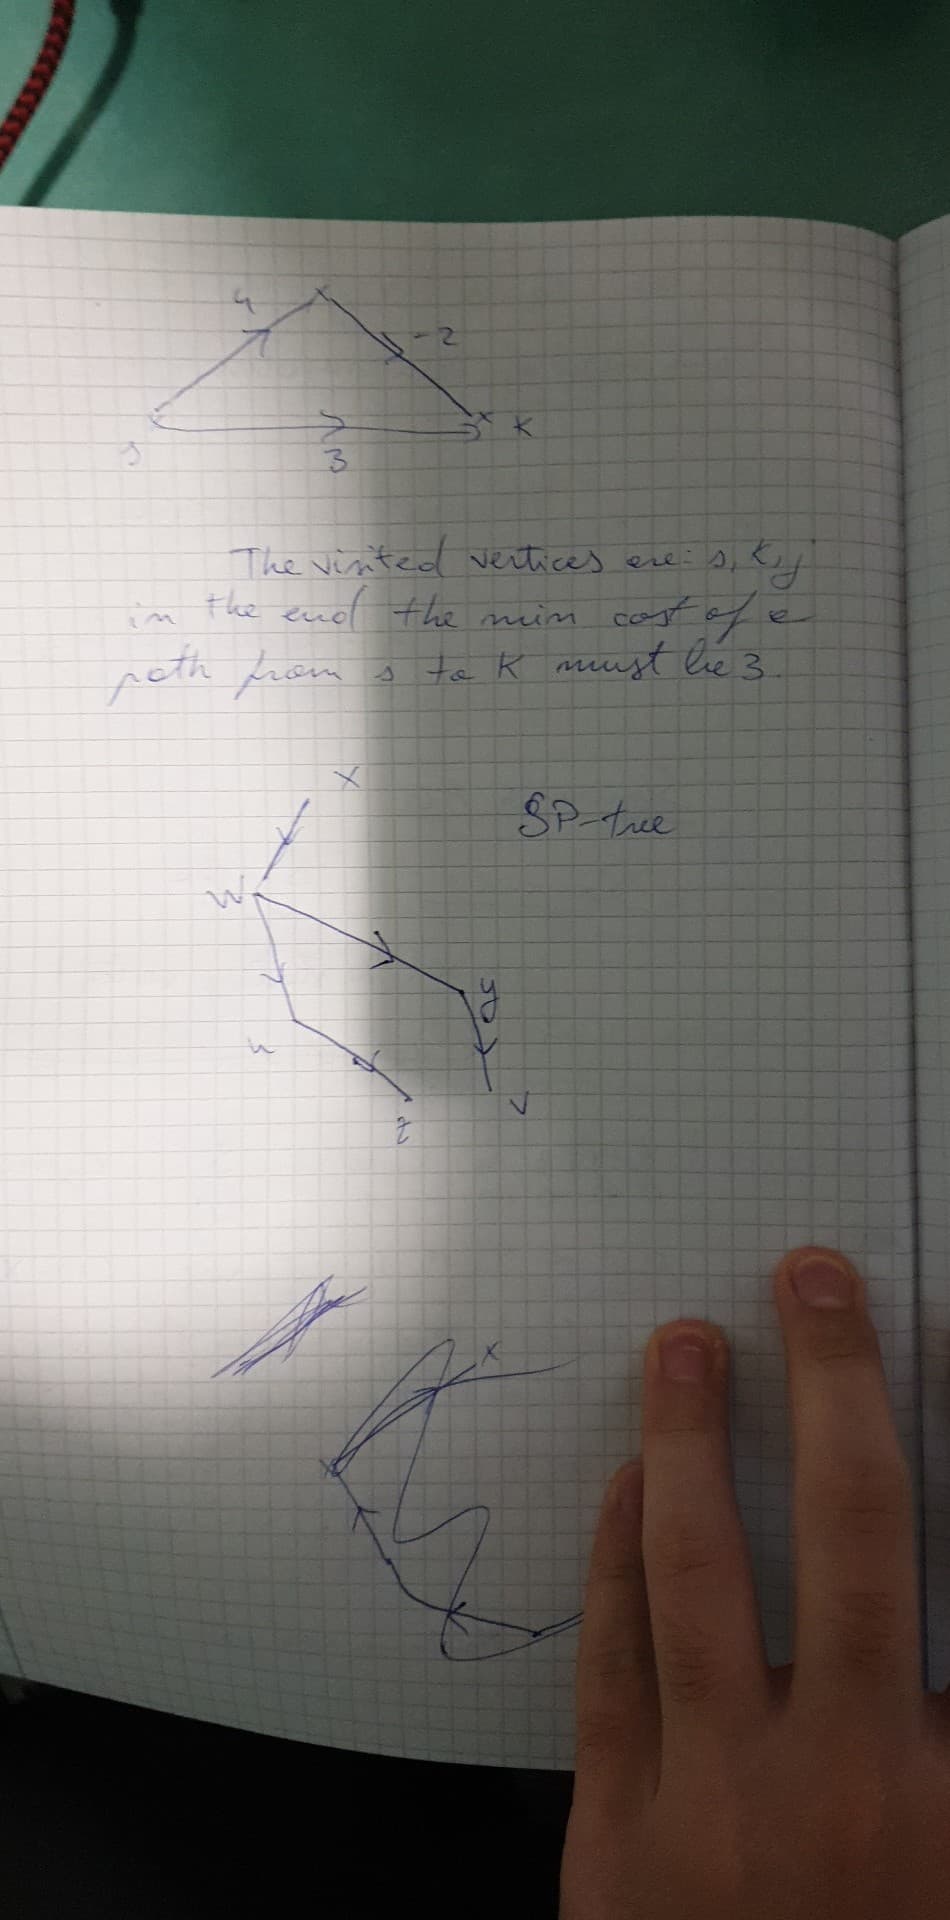 4
-2
s
3
K
The visited vertices are: s, K, j
in the end the min cost of a
path from s to K must be 3.
x
SP-tree
w
y
u
v
z
x